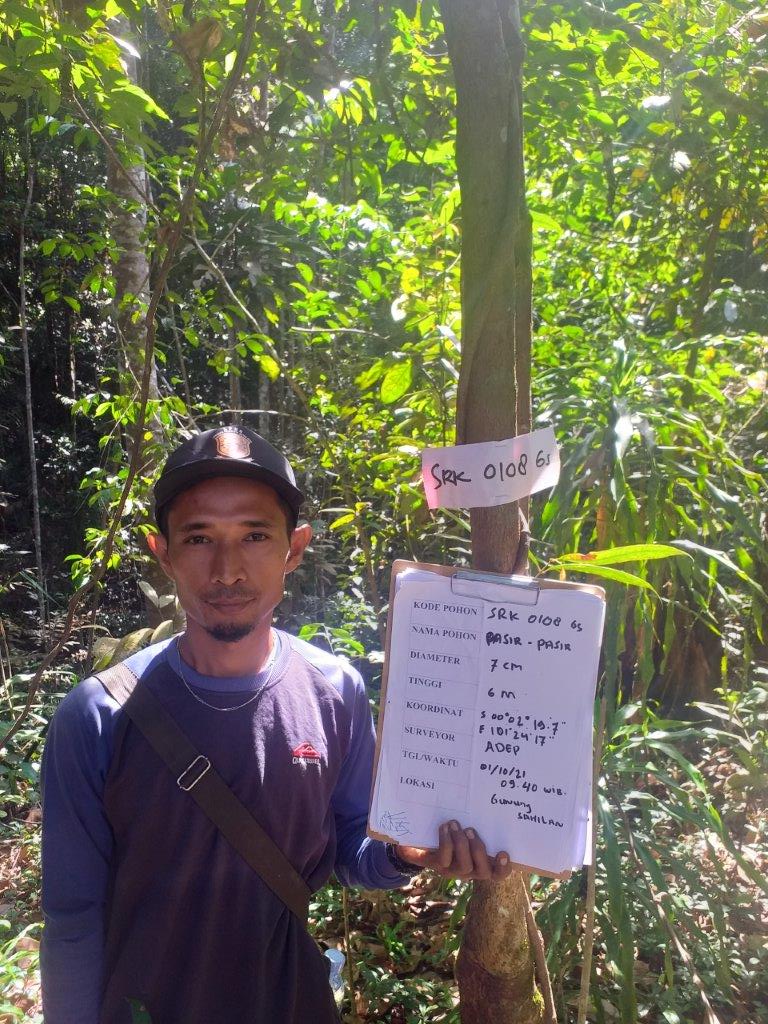 SRK 0108 Gs
KODE POHON SRK 0108 Gs
NAMA POHON PASIR - PASIR
DIAMETER 7 cm
TINGGI 6 M
KOORDINAT S 00°02'19.7"
E 101°24'17"
SURVEYOR ADEP
TGL/WAKTU 01/10/21
09.40 WIB.
LOKASI Gunung
SAHILAN